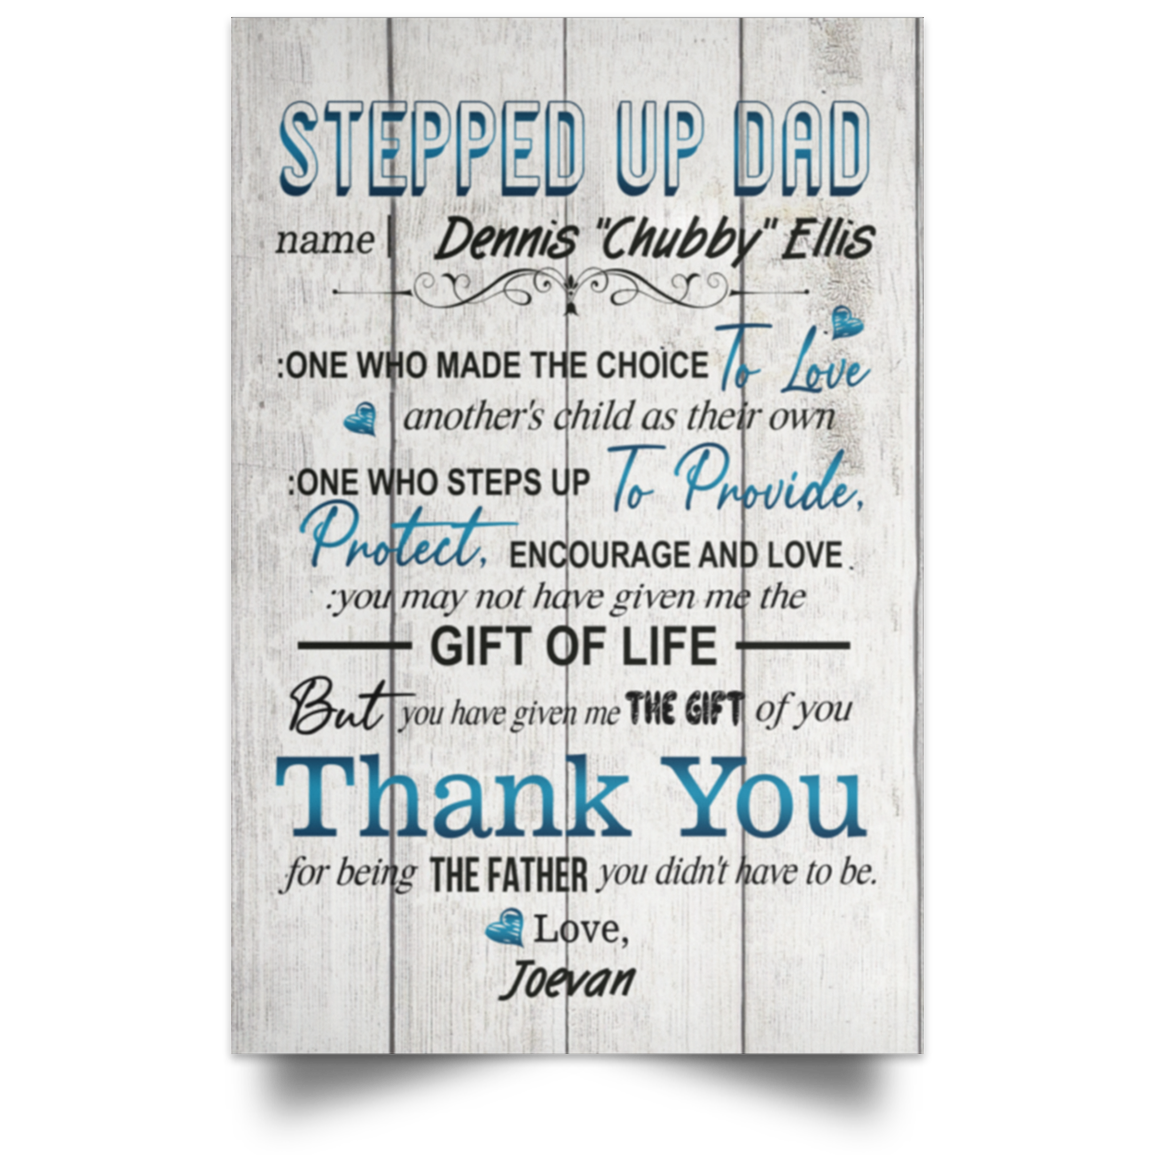 STEPPED UP DAD
name | Dennis "Chubby" Ellis
:ONE WHO MADE THE CHOICE To Love
another's child as their own
:ONE WHO STEPS UP To Provide,
Protect, ENCOURAGE AND LOVE.
:you may not have given me the
GIFT OF LIFE
But you have given me THE GIFT of you
Thank You
for being THE FATHER you didn't have to be.
Love,
Joevan